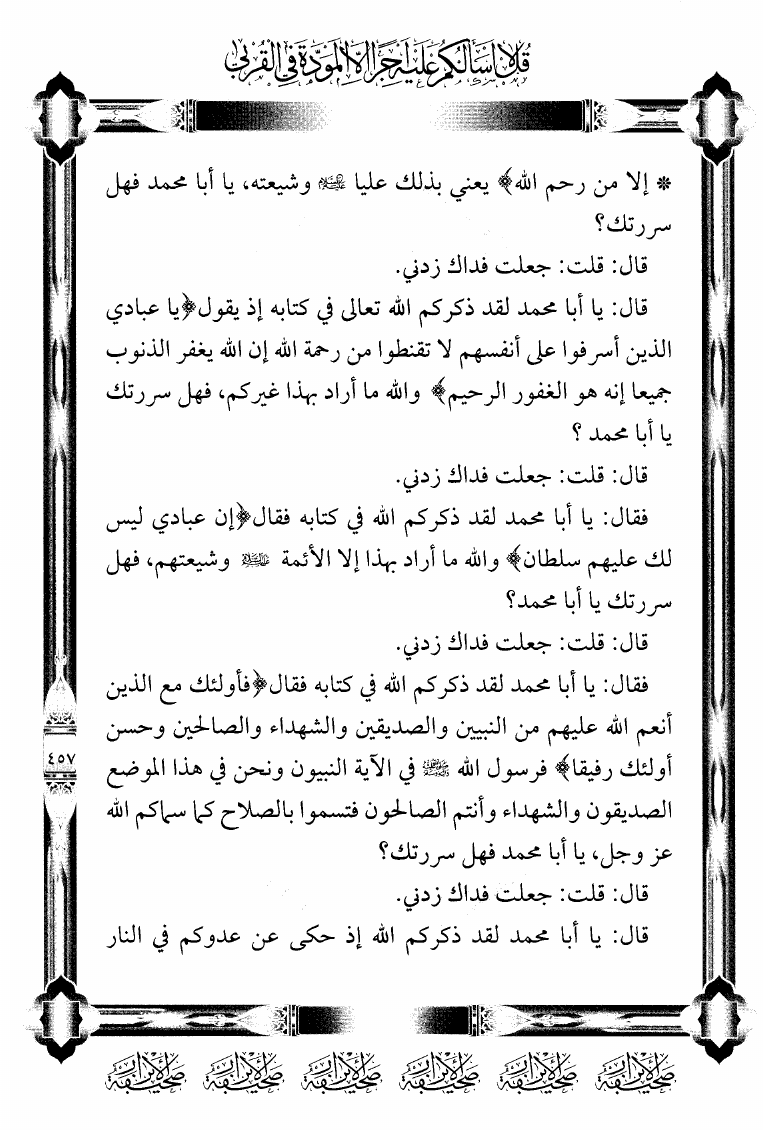 قل لا اسألكم عليه اجرا الا المودة في القربى
* إلا من رحم الله﴾ يعني بذلك عليا عليه السلام وشيعته، يا أبا محمد فهل
سررتك؟
قال: قلت: جعلت فداك زدني.
قال: يا أبا محمد لقد ذكركم الله تعالى في كتابه إذ يقول﴿يا عبادي
الذين أسرفوا على أنفسهم لا تقنطوا من رحمة الله إن الله يغفر الذنوب
جميعا إنه هو الغفور الرحيم﴾ والله ما أراد بهذا غيركم، فهل سررتك
يا أبا محمد ؟
قال: قلت: جعلت فداك زدني.
فقال: يا أبا محمد لقد ذكركم الله في كتابه فقال﴿إن عبادي ليس
لك عليهم سلطان﴾ والله ما أراد بهذا إلا الأئمة عليهم السلام وشيعتهم، فهل
سررتك يا أبا محمد؟
قال: قلت: جعلت فداك زدني.
فقال: يا أبا محمد لقد ذكركم الله في كتابه فقال﴿فأولئك مع الذين
أنعم الله عليهم من النبيين والصديقين والشهداء والصالحين وحسن
أولئك رفيقا﴾ فرسول الله ﷺ في الآية النبيون ونحن في هذا الموضع
الصديقون والشهداء وأنتم الصالحون فتسموا بالصلاح كما سماكم الله
عز وجل، يا أبا محمد فهل سررتك؟
قال: قلت: جعلت فداك زدني.
قال: يا أبا محمد لقد ذكركم الله إذ حكى عن عدوكم في النار
٤٥٧
صحيفة الأبرار صحيفة الأبرار صحيفة الأبرار صحيفة الأبرار صحيفة الأبرار صحيفة الأبرار